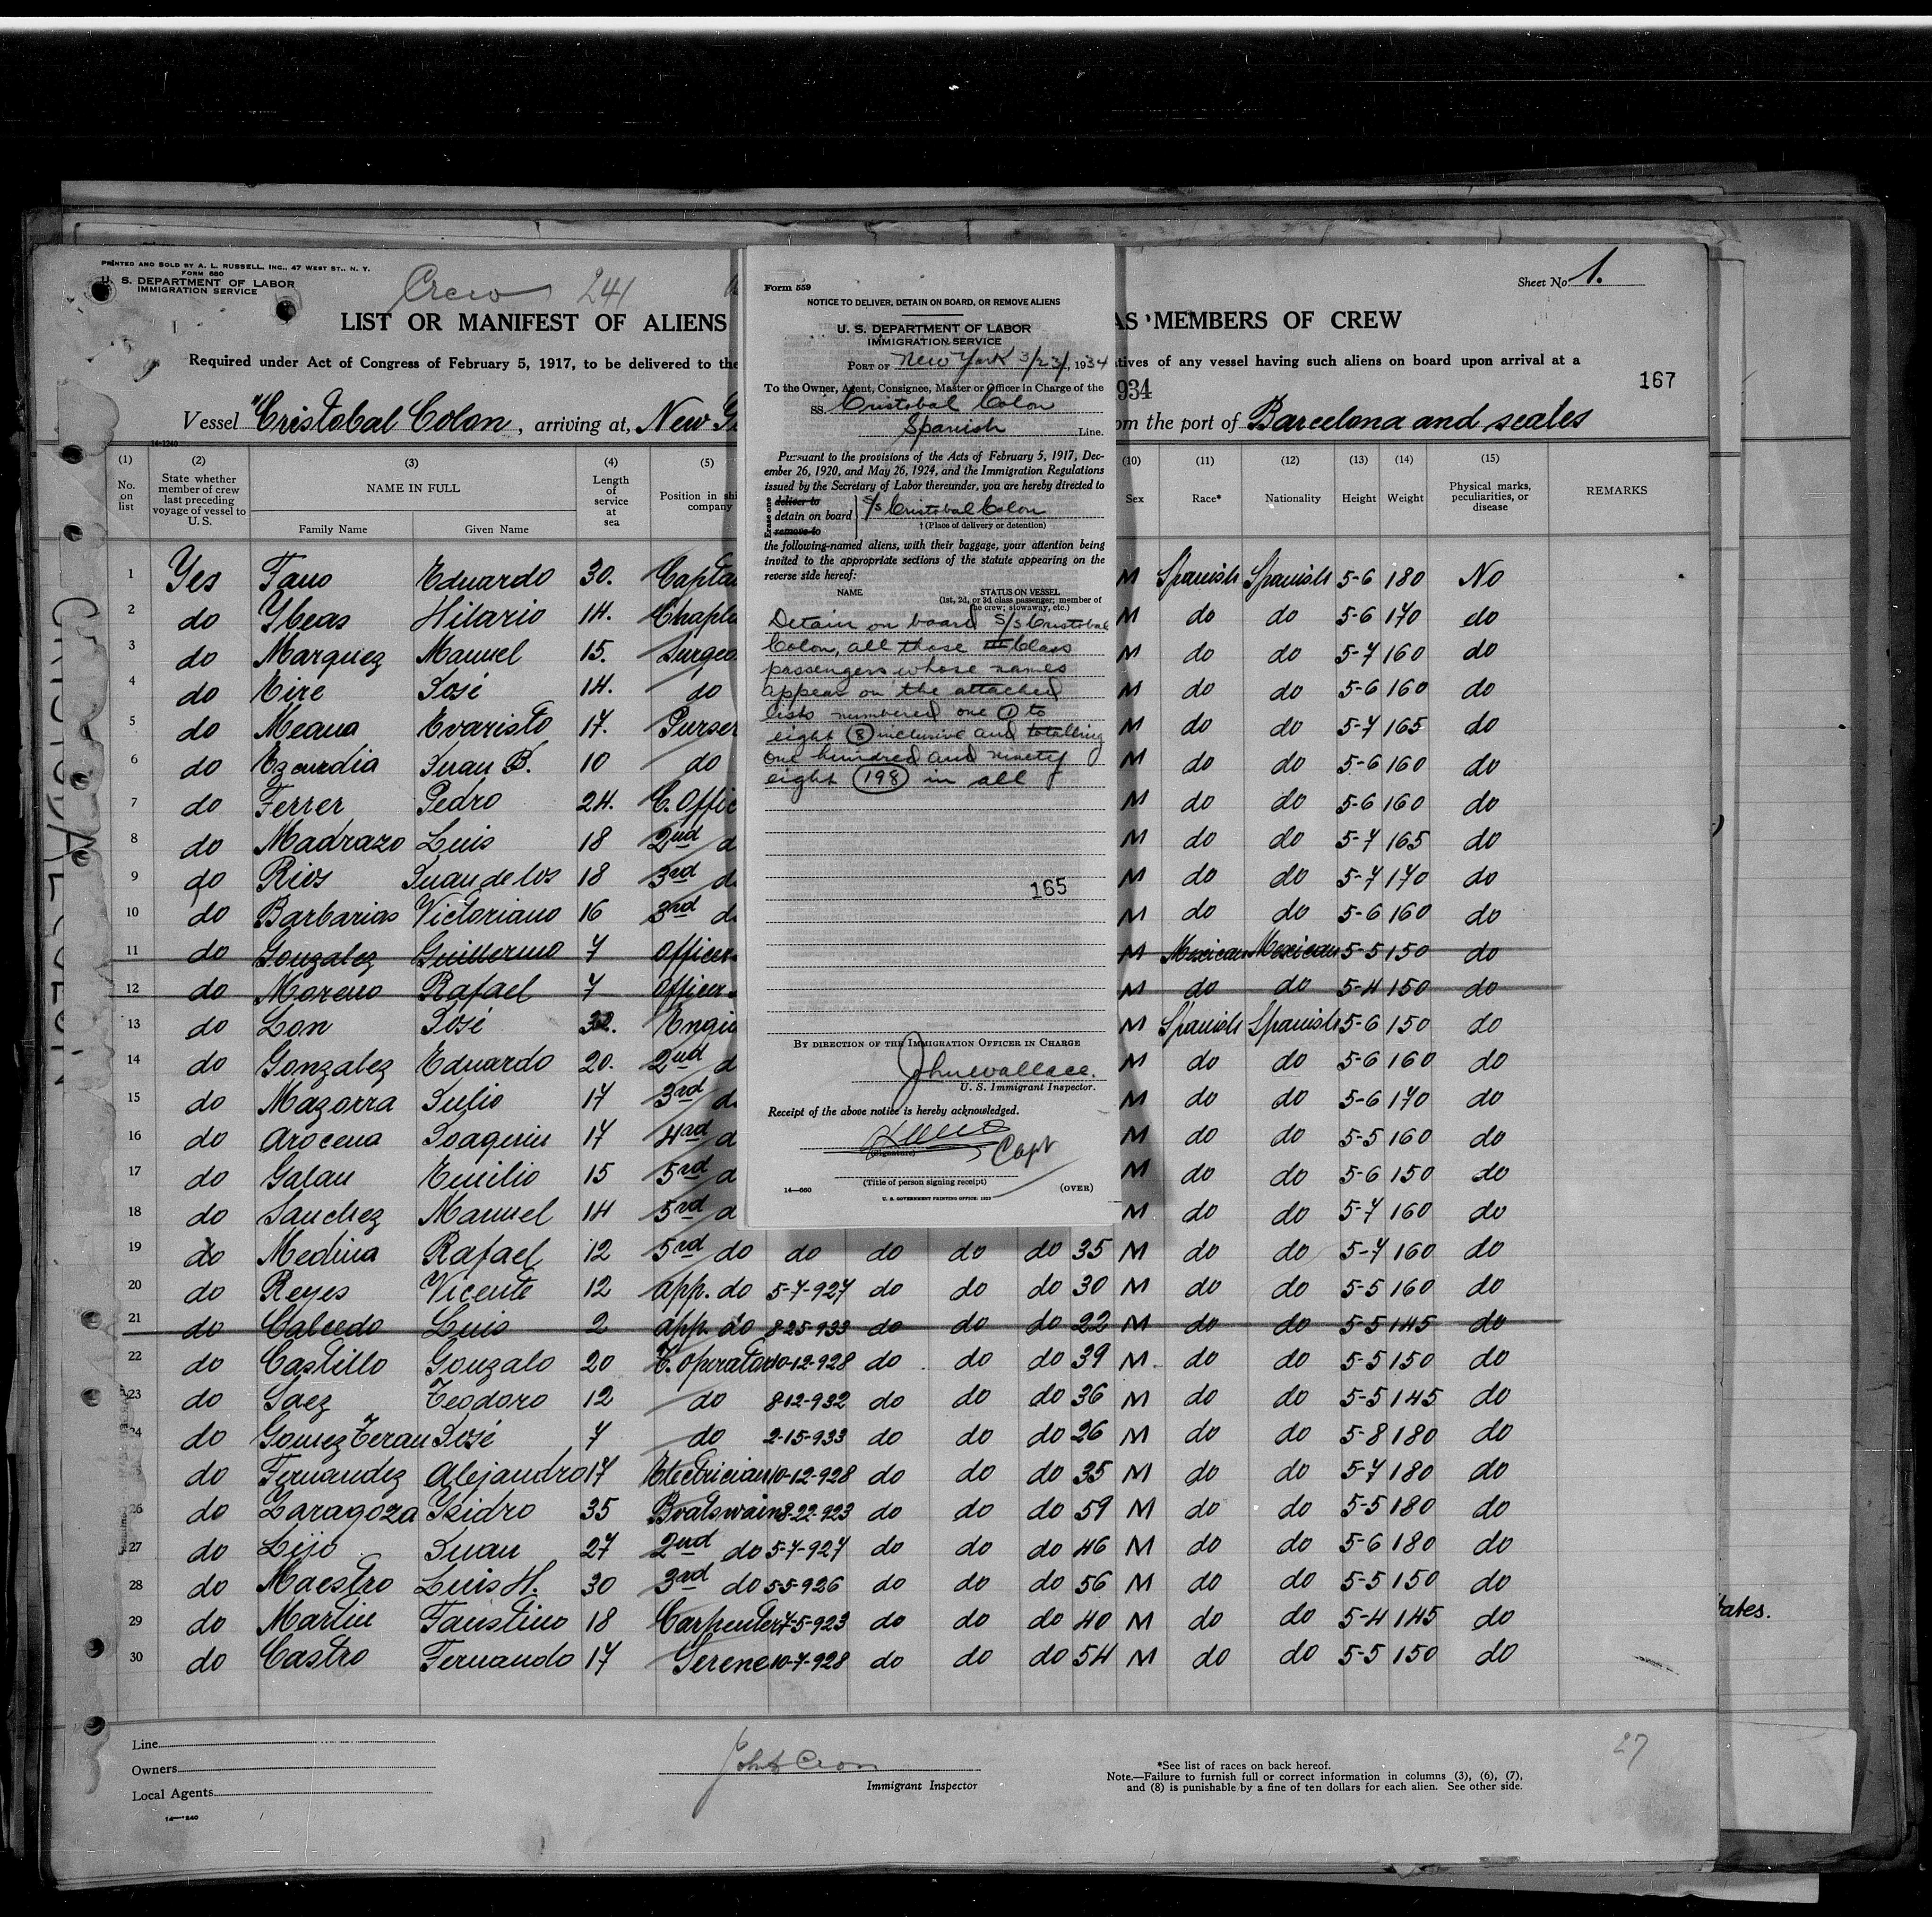 PRINTED AND SOLD BY A. L. RUSSELL, INC., 47 WEST ST., N. Y.
FORM 680
U. S. DEPARTMENT OF LABOR
IMMIGRATION SERVICE
Crew 241
Sheet No 1.
LIST OR MANIFEST OF ALIENS
AS MEMBERS OF CREW
Required under Act of Congress of February 5, 1917, to be delivered to the
tives of any vessel having such aliens on board upon arrival at a
934
167
Vessel "Cristobal Colon, arriving at, New
om the port of Barcelona and scales
14-1240
(1) (2) (3) (4) (5) (10) (11) (12) (13) (14) (15)
No. on list
State whether member of crew last preceding voyage of vessel to U. S.
NAME IN FULL
Family Name Given Name
Length of service at sea
Position in shi
company
Sex Race* Nationality Height Weight
Physical marks, peculiarities, or disease
REMARKS
1 Yes Fano Eduardo 30. Capta M Spanish Spanish 5-6 180 No
2 do Ybeas Hilario 14. Chapla M do do 5-6 170 do
3 do Marquez Manuel 15. Surgeo M do do 5-7 160 do
4 do Eire José 14. do M do do 5-6 160 do
5 do Meana Evaristo 17. Purser M do do 5-7 165 do
6 do Ezcurdia Juan B. 10 do M do do 5-6 160 do
7 do Ferrer Pedro 24. C. Offic M do do 5-6 160 do
8 do Madrazo Luis 18 2nd d M do do 5-7 165 do
9 do Rios Juan de los 18 3rd d M do do 5-7 170 do
10 do Barbarias Victoriano 16 3rd d M do do 5-6 160 do
11 do Gonzalez Guillermo 7 Officer M Mexican Mexican 5-5 150 do
12 do Moreno Rafael 7 Officer M do do 5-4 150 do
13 do Lon José 32. Engin M Spanish Spanish 5-6 150 do
14 do Gonzalez Eduardo 20. 2nd d M do do 5-6 160 do
15 do Mazorra Julio 17 3rd d M do do 5-6 170 do
16 do Arocena Joaquin 17 4rd d M do do 5-5 160 do
17 do Galan Emilio 15 5rd d M do do 5-6 150 do
18 do Sanchez Manuel 14 5rd d M do do 5-7 160 do
19 do Medina Rafael 12 5rd do do do do do 35 M do do 5-7 160 do
20 do Reyes Vicente 12 app. do 5-7-927 do do do 30 M do do 5-5 160 do
21 do Calcedo Luis 2 app. do 8-25-933 do do do 22 M do do 5-5 145 do
22 do Castillo Gonzalo 20 T. Operator 10-12-928 do do do 39 M do do 5-5 150 do
23 do Saez Teodoro 12 do 8-12-932 do do do 36 M do do 5-5 145 do
24 do Gomez Teran José 7 do 2-15-933 do do do 26 M do do 5-8 180 do
do Fernandez Alejandro 17 Electrician 10-12-928 do do do 35 M do do 5-7 180 do
26 do Zaragoza Ysidro 35 Boatswain 8-22-923 do do do 59 M do do 5-5 180 do
27 do Lijo Juan 27 2nd do 5-7-927 do do do 46 M do do 5-6 180 do
28 do Maestro Luis H. 30 3rd do 5-5-926 do do do 56 M do do 5-5 150 do
29 do Martin Faustino 18 Carpenter 7-5-923 do do do 40 M do do 5-4 145 do
30 do Castro Fernando 17 Serene 10-7-928 do do do 54 M do do 5-5 150 do
Line
Owners
Local Agents
14-1240
Immigrant Inspector
*See list of races on back hereof.
Note.—Failure to furnish full or correct information in columns (3), (6), (7),
and (8) is punishable by a fine of ten dollars for each alien. See other side.
27
tates.
Form 559
NOTICE TO DELIVER, DETAIN ON BOARD, OR REMOVE ALIENS
U. S. DEPARTMENT OF LABOR
IMMIGRATION SERVICE
PORT OF New York 3/23/, 1934
To the Owner, Agent, Consignee, Master or Officer in Charge of the
SS. Cristobal Colon
Spanish Line.
Pursuant to the provisions of the Acts of February 5, 1917, Dec-
ember 26, 1920, and May 26, 1924, and the Immigration Regulations
issued by the Secretary of Labor thereunder, you are hereby directed to
Erase one
deliver to
detain on board
remove to
S/s Cristobal Colon
† (Place of delivery or detention)
the following-named aliens, with their baggage, your attention being
invited to the appropriate sections of the statute appearing on the
reverse side hereof:
NAME STATUS ON VESSEL
(1st, 2d, or 3d class passenger; member of
the crew; stowaway, etc.)
Detain on board S/s Cristobal
Colon, all those III Class
passengers whose names
appear on the attached
lists numbered one (1) to
eight (8) inclusive and totalling
one hundred and ninety
eight (198) in all
165
BY DIRECTION OF THE IMMIGRATION OFFICER IN CHARGE
John Wallace.
U. S. Immigrant Inspector.
Receipt of the above notice is hereby acknowledged.
(Signature)
Capt
(Title of person signing receipt)
14—660
U. S. GOVERNMENT PRINTING OFFICE:
(OVER)
CRISTOBAL COLON